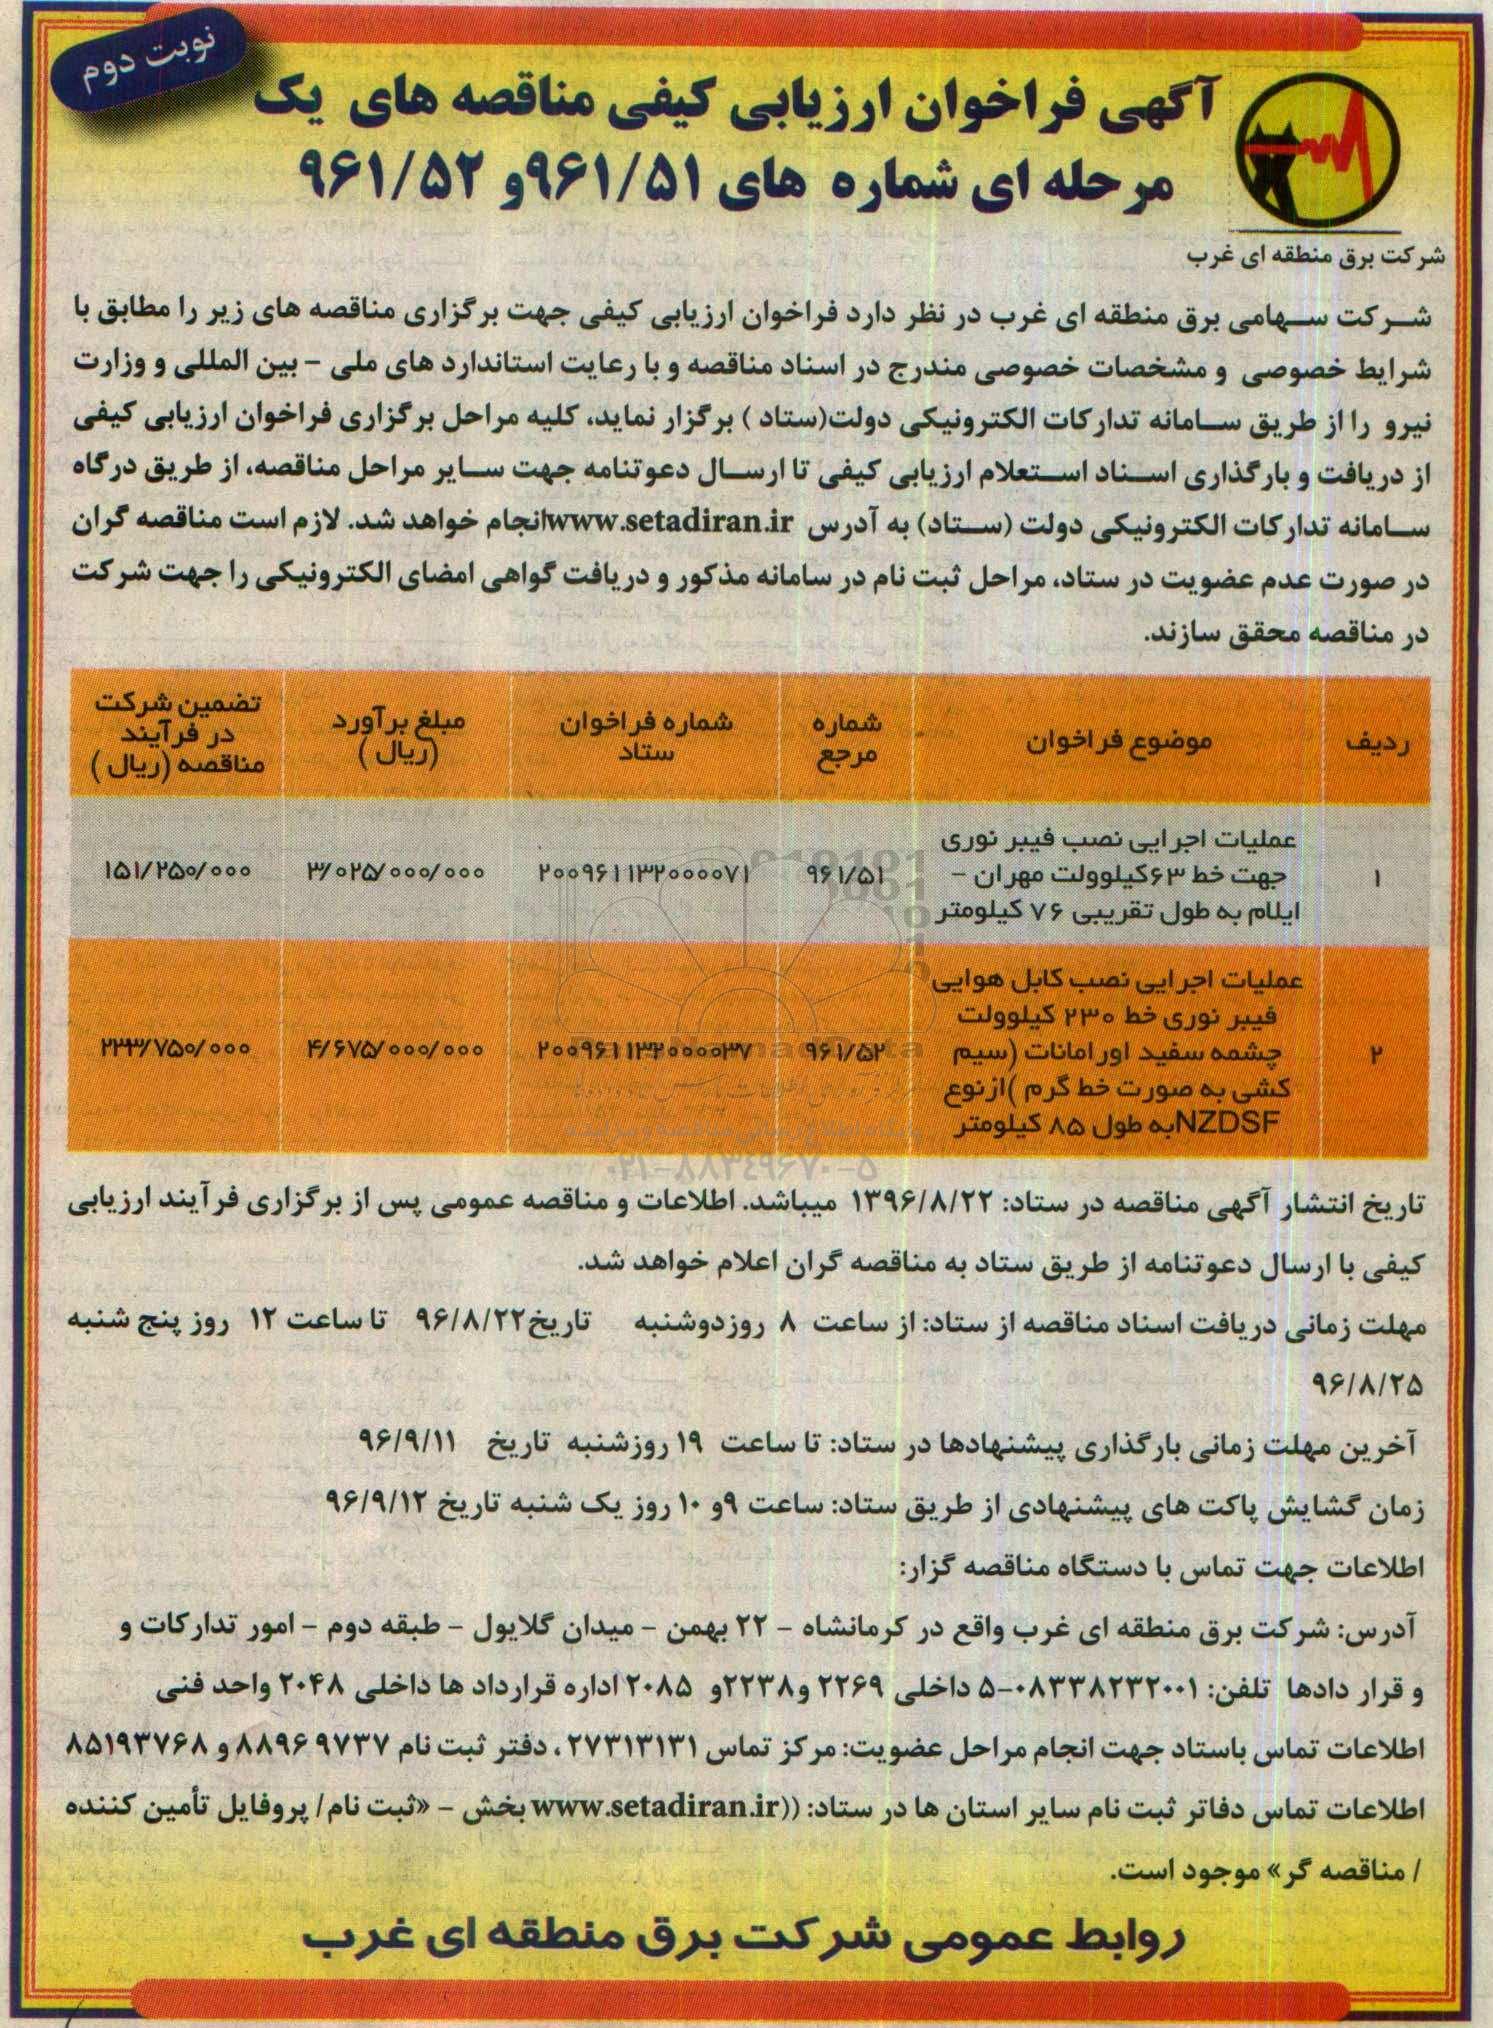 نوبت دوم
آگهی فراخوان ارزیابی کیفی مناقصه های یک
مرحله ای شماره های ۹۶۱/۵۱و ۹۶۱/۵۲
شرکت برق منطقه ای غرب
شرکت سهامی برق منطقه ای غرب در نظر دارد فراخوان ارزیابی کیفی جهت برگزاری مناقصه های زیر را مطابق با
شرایط خصوصی و مشخصات خصوصی مندرج در اسناد مناقصه و با رعایت استاندارد های ملی – بین المللی و وزارت
نیرو را از طریق سامانه تدارکات الکترونیکی دولت(ستاد ) برگزار نماید، کلیه مراحل برگزاری فراخوان ارزیابی کیفی
از دریافت و بارگذاری اسناد استعلام ارزیابی کیفی تا ارسال دعوتنامه جهت سایر مراحل مناقصه، از طریق درگاه
سامانه تدارکات الکترونیکی دولت (ستاد) به آدرس www.setadiran.irانجام خواهد شد. لازم است مناقصه گران
در صورت عدم عضویت در ستاد، مراحل ثبت نام در سامانه مذکور و دریافت گواهی امضای الکترونیکی را جهت شرکت
در مناقصه محقق سازند.
ردیف موضوع فراخوان شماره مرجع شماره فراخوان ستاد مبلغ برآورد (ریال ) تضمین شرکت در فرآیند مناقصه (ریال )
عملیات اجرایی نصب فیبر نوری
۱ جهت خط ۶۳کیلوولت مهران – ۹۶۱/۵۱ ۲۰۰۹۶۱۱۳۲۰۰۰۰۷۱ ۳/۰۲۵/۰۰۰/۰۰۰ ۱۵۱/۲۵۰/۰۰۰
ایلام به طول تقریبی ۷۶ کیلومتر
عملیات اجرایی نصب کابل هوایی
فیبر نوری خط ۲۳۰ کیلوولت
۲ چشمه سفید اورامانات (سیم ۹۶۱/۵۲ ۲۰۰۹۶۱۱۳۲۰۰۰۰۳۷ ۴/۶۷۵/۰۰۰/۰۰۰ ۲۳۳/۷۵۰/۰۰۰
کشی به صورت خط گرم )ازنوع
NZDSFبه طول ۸۵ کیلومتر
۰۲۱-۸۸۳۴۹۶۷۰-۵
تاریخ انتشار آگهی مناقصه در ستاد: ۱۳۹۶/۸/۲۲ میباشد. اطلاعات و مناقصه عمومی پس از برگزاری فرآیند ارزیابی
کیفی با ارسال دعوتنامه از طریق ستاد به مناقصه گران اعلام خواهد شد.
مهلت زمانی دریافت اسناد مناقصه از ستاد: از ساعت ۸ روزدوشنبه تاریخ۹۶/۸/۲۲ تا ساعت ۱۲ روز پنج شنبه
۹۶/۸/۲۵
آخرین مهلت زمانی بارگذاری پیشنهادها در ستاد: تا ساعت ۱۹ روزشنبه تاریخ ۹۶/۹/۱۱
زمان گشایش پاکت های پیشنهادی از طریق ستاد: ساعت ۹و ۱۰ روز یک شنبه تاریخ ۹۶/۹/۱۲
اطلاعات جهت تماس با دستگاه مناقصه گزار:
آدرس: شرکت برق منطقه ای غرب واقع در کرمانشاه – ۲۲ بهمن – میدان گلایول – طبقه دوم – امور تدارکات و
و قرار دادها تلفن: ۰۸۳۳۸۲۳۲۰۰۱-۵ داخلی ۲۲۶۹ و۲۲۳۸و ۲۰۸۵ اداره قرارداد ها داخلی ۲۰۴۸ واحد فنی
اطلاعات تماس باستاد جهت انجام مراحل عضویت: مرکز تماس ۲۷۳۱۳۱۳۱، دفتر ثبت نام ۸۸۹۶۹۷۳۷ و ۸۵۱۹۳۷۶۸
اطلاعات تماس دفاتر ثبت نام سایر استان ها در ستاد: ((www.setadiran.ir بخش – «ثبت نام/ پروفایل تأمین کننده
/ مناقصه گر» موجود است.
روابط عمومی شرکت برق منطقه ای غرب